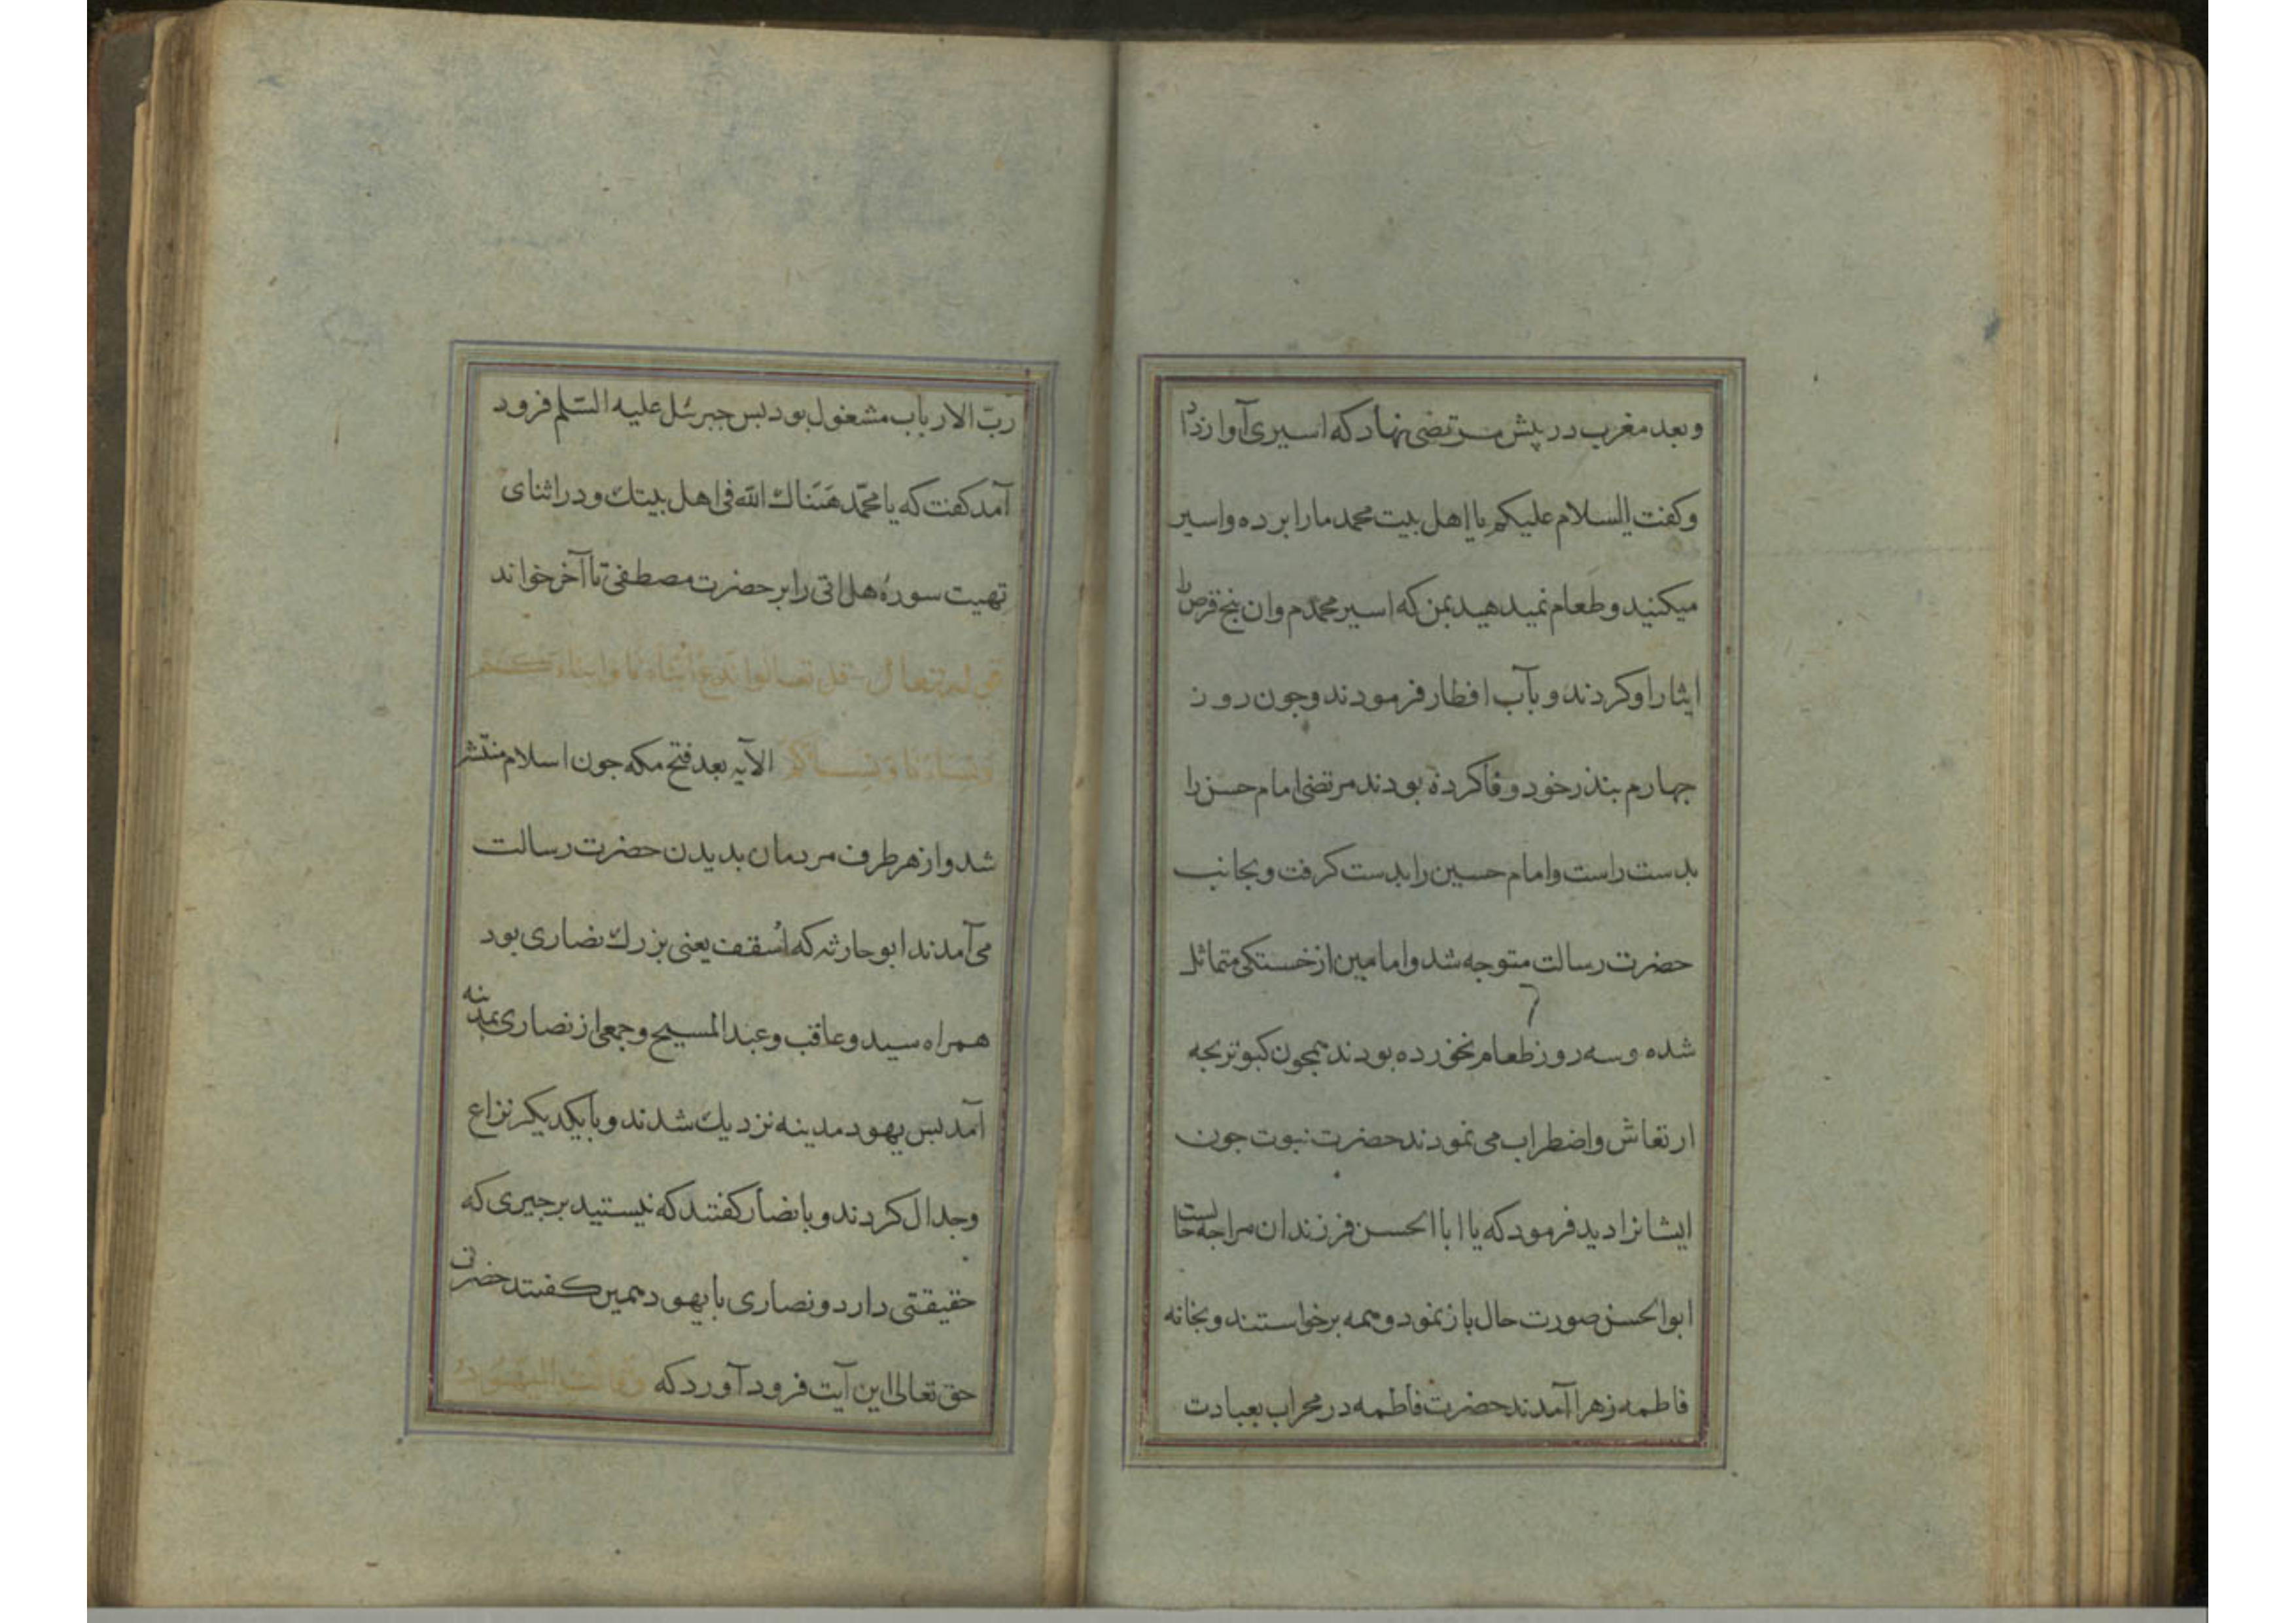 وبعد مغرب در پیش مرتضی نهاد که اسیری آواز داد
وکفت السلام علیکم یا اهل بیت محمد ما را برده واسیر
میکنید وطعام نمیدهید بمن که اسیر محمدم وان پنج قرص را
ایثار او کردند و بآب افطار فرمودند وجون روز
جهارم بنذر خود وفا کرده بودند مرتضی امام حسن را
بدست راست وامام حسین را بدست کرفت وبجانب
حضرت رسالت متوجه شد وامامین از خستکی متماثل
شده وسه روز طعام نخورده بودند همجون کبوتر بجه
ارتعاش واضطراب می نمودند حضرت نبوت جون
ایشانرا دید فرمود که یا ابا الحسن فرزندان مرا جه حالست
ابوالحسن صورت حال باز نمود وهمه برخواستند وبخانه
فاطمه زهرا آمدند حضرت فاطمه در محراب بعبادت
ربّ الارباب مشغول بود بس جبرئل علیه السّلم فرود
آمد کفت که یا محمّد هَنَّناك الله فی اهل بیتك ودر اثنای
تهیت سورهٔ هل اتی را بر حضرت مصطفی تا آخر خواند
قوله تعالی قل تعالوا ندع أبناءنا وابناءکم
ونساءنا ونساءکم الآیه بعد فتح مکه جون اسلام منتشر
شد واز هر طرف مردمان بدیدن حضرت رسالت
می آمدند ابو حارثه که اُسقف یعنی بزرك نصاری بود
همراه سید وعاقب وعبد المسیح وجمعی از نصاری بمدینه
آمد بس یهود مدینه نزدیك شدند وبا یکدیکر نزاع
وجدال کردند وبا نصار کفتند که نیستید بر جیزی که
حقیقتی دارد ونصاری با یهود همین کفتند حضرت
حق تعالی این آیت فرود آورد که وقالت الیهود